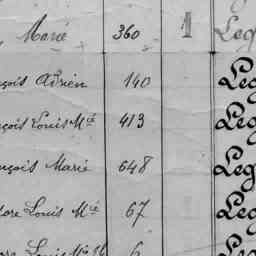 Marie 360 1 Leg
nçois Adrien 140 Leg
nçois Louis Mie 413 Leg
nçois Marie 648 Leg
dore Louis Mie 67 Leg
Louis 6 Leg